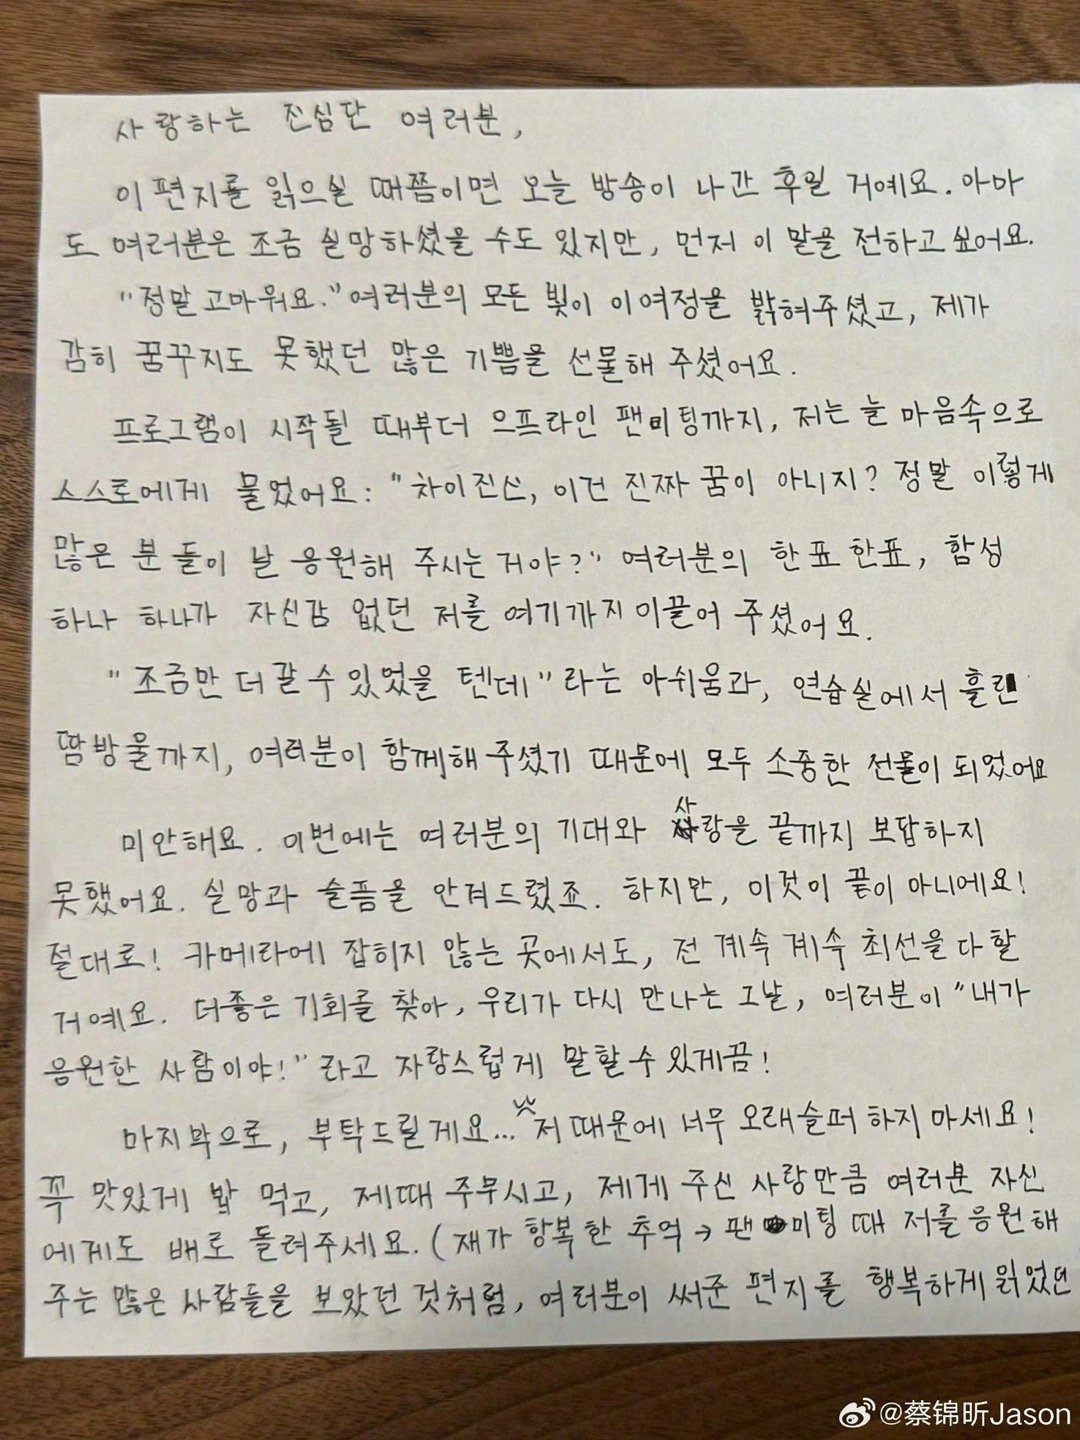 사랑하는 진심단 여러분,
이 편지를 읽으실 때쯤이면 오늘 방송이 나간 후일 거예요. 아마
도 여러분은 조금 실망하셨을 수도 있지만, 먼저 이 말을 전하고 싶어요.
"정말 고마워요." 여러분의 모든 빛이 이 여정을 밝혀주셨고, 제가
감히 꿈꾸지도 못했던 많은 기쁨을 선물해 주셨어요.
프로그램이 시작될 때부터 오프라인 팬미팅까지, 저는 늘 마음속으로
스스로에게 물었어요: "차이진신, 이건 진짜 꿈이 아니지? 정말 이렇게
많은 분들이 날 응원해 주시는 거야?" 여러분의 한표 한표, 함성
하나 하나가 자신감 없던 저를 여기까지 이끌어 주셨어요.
"조금만 더 갈 수 있었을 텐데"라는 아쉬움과, 연습실에서 흘린
땀방울까지, 여러분이 함께해 주셨기 때문에 모두 소중한 선물이 되었어요
미안해요. 이번에는 여러분의 기대와 사랑을 끝까지 보답하지
못했어요. 실망과 슬픔을 안겨드렸죠. 하지만, 이것이 끝이 아니에요!
절대로! 카메라에 잡히지 않는 곳에서도, 전 계속 계속 최선을 다할
거예요. 더좋은 기회를 찾아, 우리가 다시 만나는 그날, 여러분이 "내가
응원한 사람이야!"라고 자랑스럽게 말할 수 있게끔!
마지막으로, 부탁드릴게요... 저 때문에 너무 오래슬퍼 하지 마세요!
꼭 맛있게 밥 먹고, 제때 주무시고, 제게 주신 사랑만큼 여러분 자신
에게도 배로 돌려주세요. (제가 행복한 추억 → 팬미팅 때 저를 응원해
주는 많은 사람들을 보았던 것처럼, 여러분이 써준 편지를 행복하게 읽었던
@蔡锦昕Jason